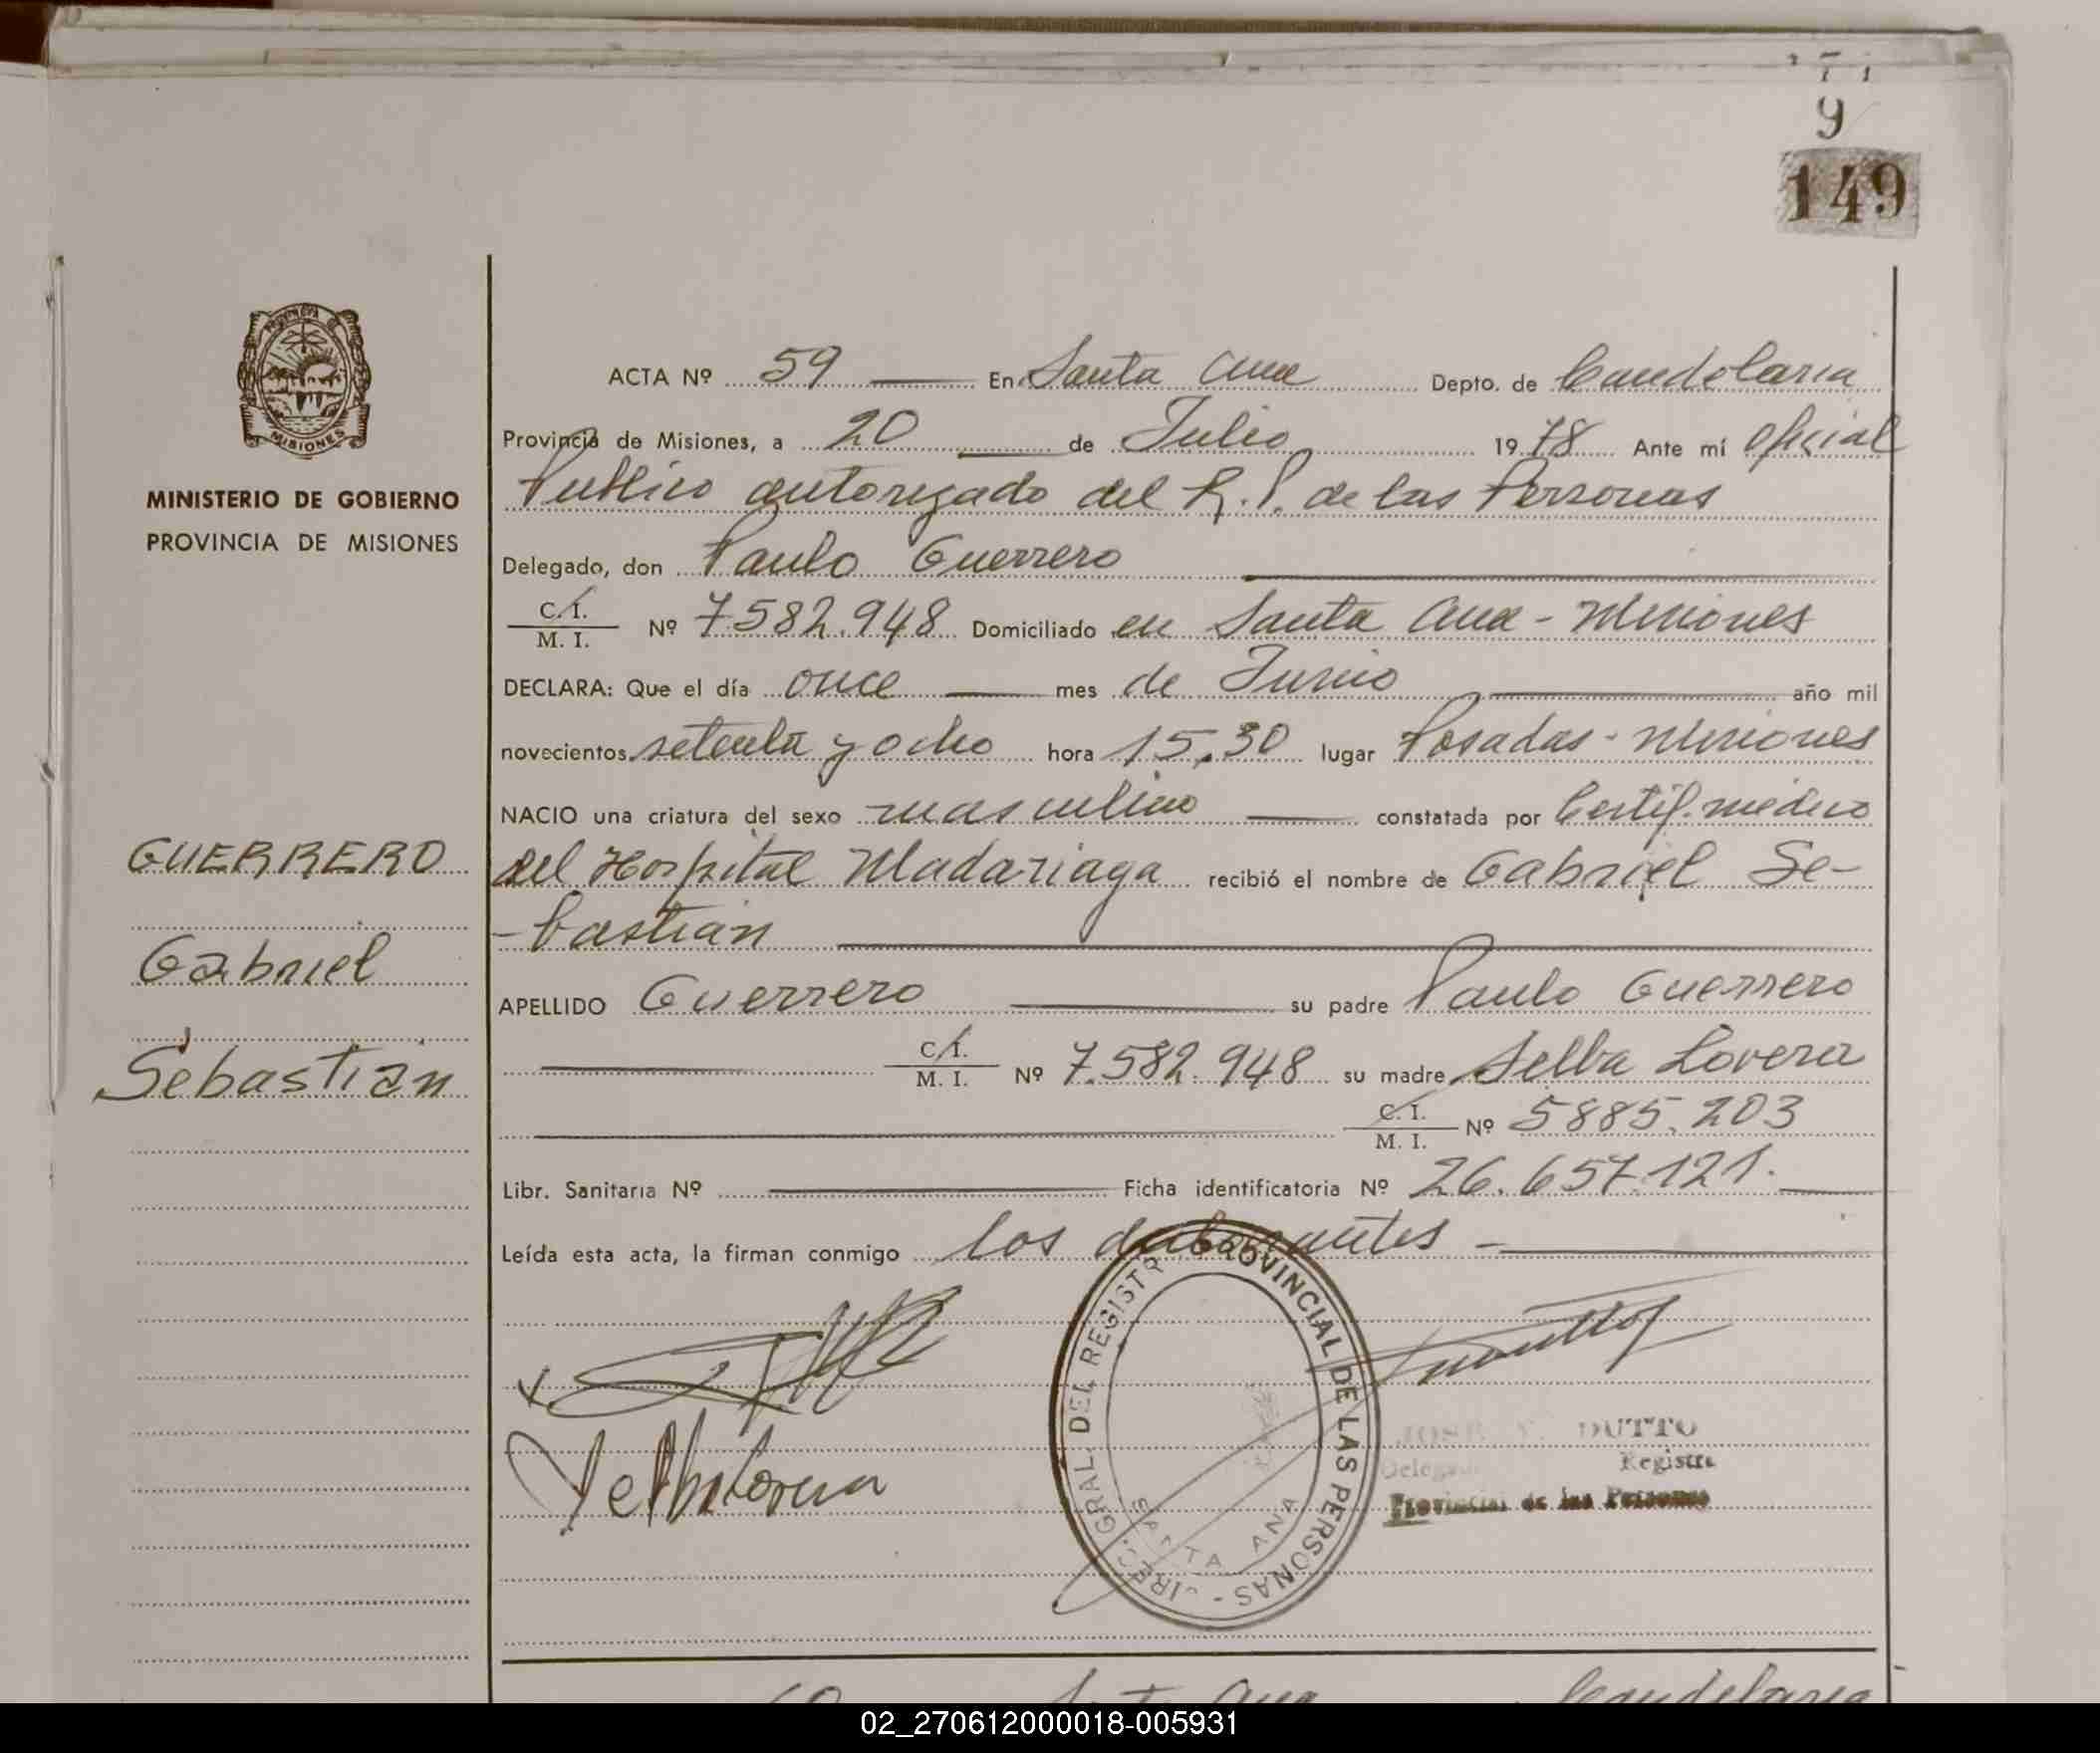 9
149
MISIONES
MINISTERIO DE GOBIERNO
PROVINCIA DE MISIONES
GUERRERO
Gabriel
Sebastián
ACTA Nº 59 En Santa Ana Depto. de Candelaria
Provincia de Misiones, a 20 de Julio 1978 Ante mí Oficial
Publico autorizado del R.P. de las Personas
Delegado, don Paulo Guerrero
C.I.
M. I. Nº 7.582.948 Domiciliado en Santa Ana - Misiones
DECLARA: Que el día once mes de Junio año mil
novecientos setenta y ocho hora 15,30 lugar Posadas - Misiones
NACIO una criatura del sexo masculino constatada por Certif. médico
del Hospital Madariaga recibió el nombre de Gabriel Se-
-bastián
APELLIDO Guerrero su padre Paulo Guerrero
C.I.
M. I. Nº 7.582.948 su madre Selba Lovera
C.I.
M. I. Nº 5885.203
Libr. Sanitaria Nº Ficha identificatoria Nº 26.657.121.
Leída esta acta, la firman conmigo los
GRAL. DEL REGISTR PROVINCIAL DE LAS PERSONAS -
SANTA ANA
DUTTO
Registro
Provincial de las Personas
Santa Ana Candelaria
02_270612000018-005931